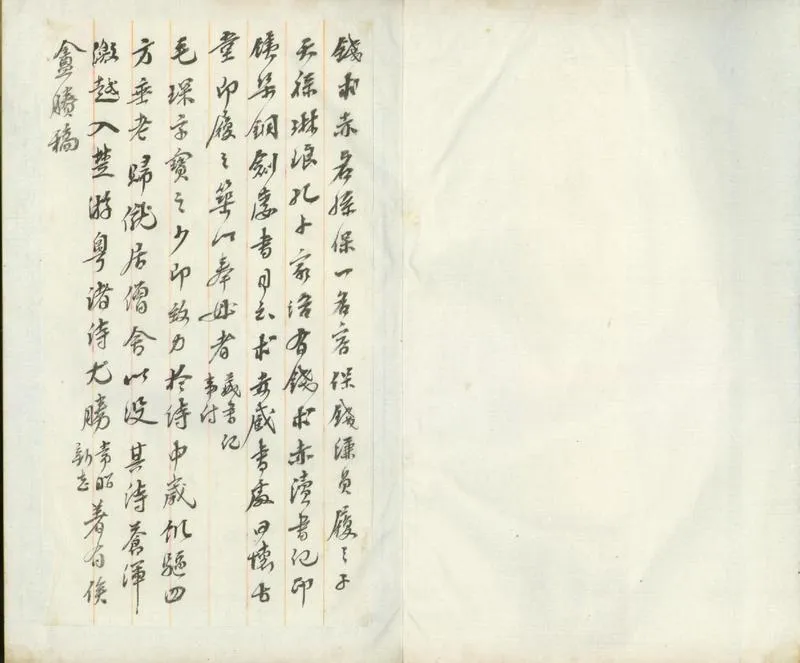 錢求赤名孫保一名容保錢謙貞履之子
天祿琳琅孔卜家語有錢求赤讀書記印
鐵琴銅劍廔書目云求赤藏書處曰懷古
堂即履之築以奉母者藏書記事詩
毛琛字寶之少即致力於詩中歲飢驅四
方垂老歸僦居僧舍以没其詩蒼渾
激越入楚游粵諸詩尤勝常昭新志著有俟
盦賸稿